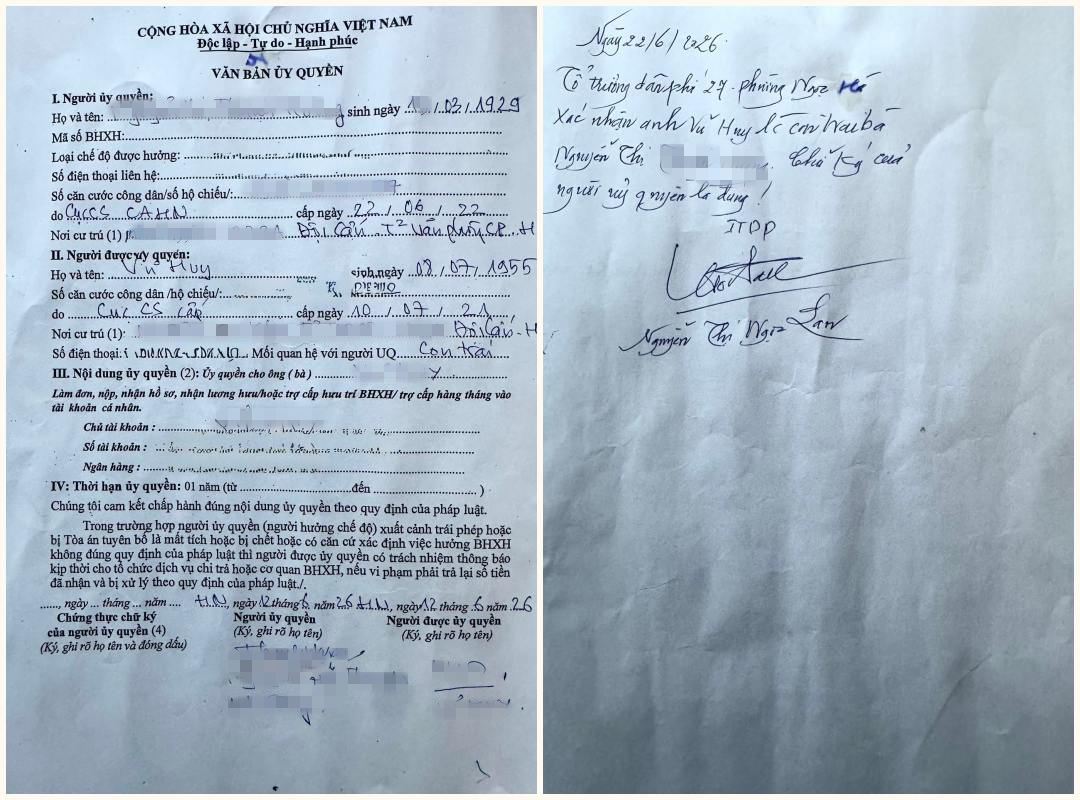 CỘNG HÒA XÃ HỘI CHỦ NGHĨA VIỆT NAM
Độc lập - Tự do - Hạnh phúc
VĂN BẢN ỦY QUYỀN
I. Người ủy quyền:
Họ và tên: sinh ngày /03/1929
Mã số BHXH:
Loại chế độ được hưởng:
Số điện thoại liên hệ:
Số căn cước công dân/số hộ chiếu/:
do CụcCS CAHN cấp ngày 22/06/22
Nơi cư trú (1) Đội Cấn. T² Văn phòng CP. H
II. Người được ủy quyền:
Họ và tên: Vũ Huy sinh ngày 08/07/1955
Số căn cước công dân /hộ chiếu/:
do Cục CS cấp cấp ngày 10/07/21
Nơi cư trú (1): Đội Cấn. H
Số điện thoại: Mối quan hệ với người UQ. Con trai
III. Nội dung ủy quyền (2): Ủy quyền cho ông ( bà )
Làm đơn, nộp, nhận hồ sơ, nhận lương hưu/hoặc trợ cấp hưu trí BHXH/ trợ cấp hàng tháng vào
tài khoản cá nhân.
Chủ tài khoản :
Số tài khoản :
Ngân hàng :
IV: Thời hạn ủy quyền: 01 năm (từ đến )
Chúng tôi cam kết chấp hành đúng nội dung ủy quyền theo quy định của pháp luật.
Trong trường hợp người ủy quyền (người hưởng chế độ) xuất cảnh trái phép hoặc
bị Tòa án tuyên bố là mất tích hoặc bị chết hoặc có căn cứ xác định việc hưởng BHXH
không đúng quy định của pháp luật thì người được ủy quyền có trách nhiệm thông báo
kịp thời cho tổ chức dịch vụ chi trả hoặc cơ quan BHXH, nếu vi phạm phải trả lại số tiền
đã nhận và bị xử lý theo quy định của pháp luật./.
....., ngày ... tháng ... năm .... HN, ngày 12 tháng 6 năm 26 HN, ngày 12 tháng 6 năm 26
Chứng thực chữ ký Người ủy quyền Người được ủy quyền
của người ủy quyền (4) (Ký, ghi rõ họ tên) (Ký, ghi rõ họ tên)
(Ký, ghi rõ họ tên và đóng dấu)
Ngày 22/6/2026
Tổ trưởng dân phố 27. phường Ngọc Hà
Xác nhận anh Vũ Huy là con trai bà
Nguyễn Thị chữ ký của
người uỷ quyền là đúng!
TTDP
Nguyễn Thị Ngọc Lan